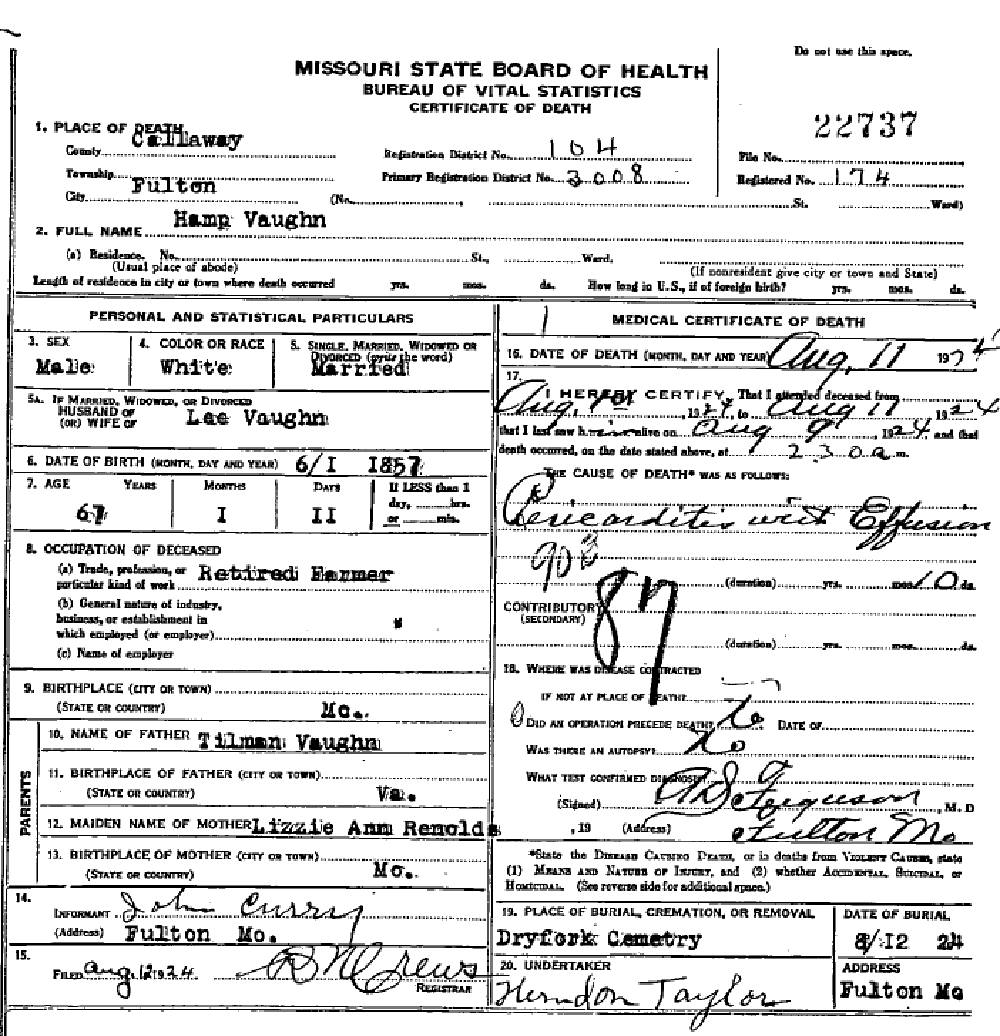 Do not use this space.
MISSOURI STATE BOARD OF HEALTH
BUREAU OF VITAL STATISTICS
CERTIFICATE OF DEATH
22737
1. PLACE OF DEATH
County Callaway
Registration District No. 104
File No.
Township
Primary Registration District No. 3008
Registered No. 174
City Fulton (No. , St. Ward)
2. FULL NAME Hamp Vaughn
(a) Residence. No. St., Ward,
(Usual place of abode) (If nonresident give city or town and State)
Length of residence in city or town where death occurred yrs. mos. ds. How long in U.S., if of foreign birth? yrs. mos. ds.
PERSONAL AND STATISTICAL PARTICULARS
3. SEX Male
4. COLOR OR RACE White
5. SINGLE, MARRIED, WIDOWED OR DIVORCED (write the word) Married
5A. IF MARRIED, WIDOWED, OR DIVORCED
HUSBAND OF
(OR) WIFE OF Lee Vaughn
6. DATE OF BIRTH (MONTH, DAY AND YEAR) 6/I 1857
7. AGE YEARS MONTHS DAYS If LESS than 1
day, hrs.
67 I II or min.
8. OCCUPATION OF DECEASED
(a) Trade, profession, or
particular kind of work Retired Farmer
(b) General nature of industry,
business, or establishment in
which employed (or employer) "
(c) Name of employer
9. BIRTHPLACE (CITY OR TOWN)
(STATE OR COUNTRY) Mo.
PARENTS
10. NAME OF FATHER Tilman Vaughn
11. BIRTHPLACE OF FATHER (CITY OR TOWN)
(STATE OR COUNTRY) Va.
12. MAIDEN NAME OF MOTHER Lizzie Ann Renolds
13. BIRTHPLACE OF MOTHER (CITY OR TOWN)
(STATE OR COUNTRY) Mo.
14.
INFORMANT John Curry
(Address) Fulton Mo.
15.
FILED Aug. 12 1924 R N Crews
REGISTRAR
1
MEDICAL CERTIFICATE OF DEATH
16. DATE OF DEATH (MONTH, DAY AND YEAR) Aug, 11 1924
17.
I HEREBY CERTIFY, That I attended deceased from
Aug, 1st, 1924, to Aug 11 1924
that I last saw him alive on Aug 9, 1924, and that
death occurred, on the date stated above, at 2 30 a m.
THE CAUSE OF DEATH* WAS AS FOLLOWS:
Pericarditis wit Effusion
90
(duration) yrs. mos. 10 ds.
87
CONTRIBUTORY
(SECONDARY)
(duration) yrs. mos. ds.
18. WHERE WAS DISEASE CONTRACTED
IF NOT AT PLACE OF DEATH?
DID AN OPERATION PRECEDE DEATH? No DATE OF
WAS THERE AN AUTOPSY? No
WHAT TEST CONFIRMED DIAGNOSIS?
(Signed) Ferguson, M. D
, 19 (Address) Fulton Mo
*State the DISEASE CAUSING DEATH, or in deaths from VIOLENT CAUSES, state
(1) MEANS AND NATURE OF INJURY, and (2) whether ACCIDENTAL, SUICIDAL, or
HOMICIDAL. (See reverse side for additional space.)
19. PLACE OF BURIAL, CREMATION, OR REMOVAL
Dryfork Cemetry
DATE OF BURIAL
8/12 24
20. UNDERTAKER
Herndon Taylor
ADDRESS
Fulton Mo